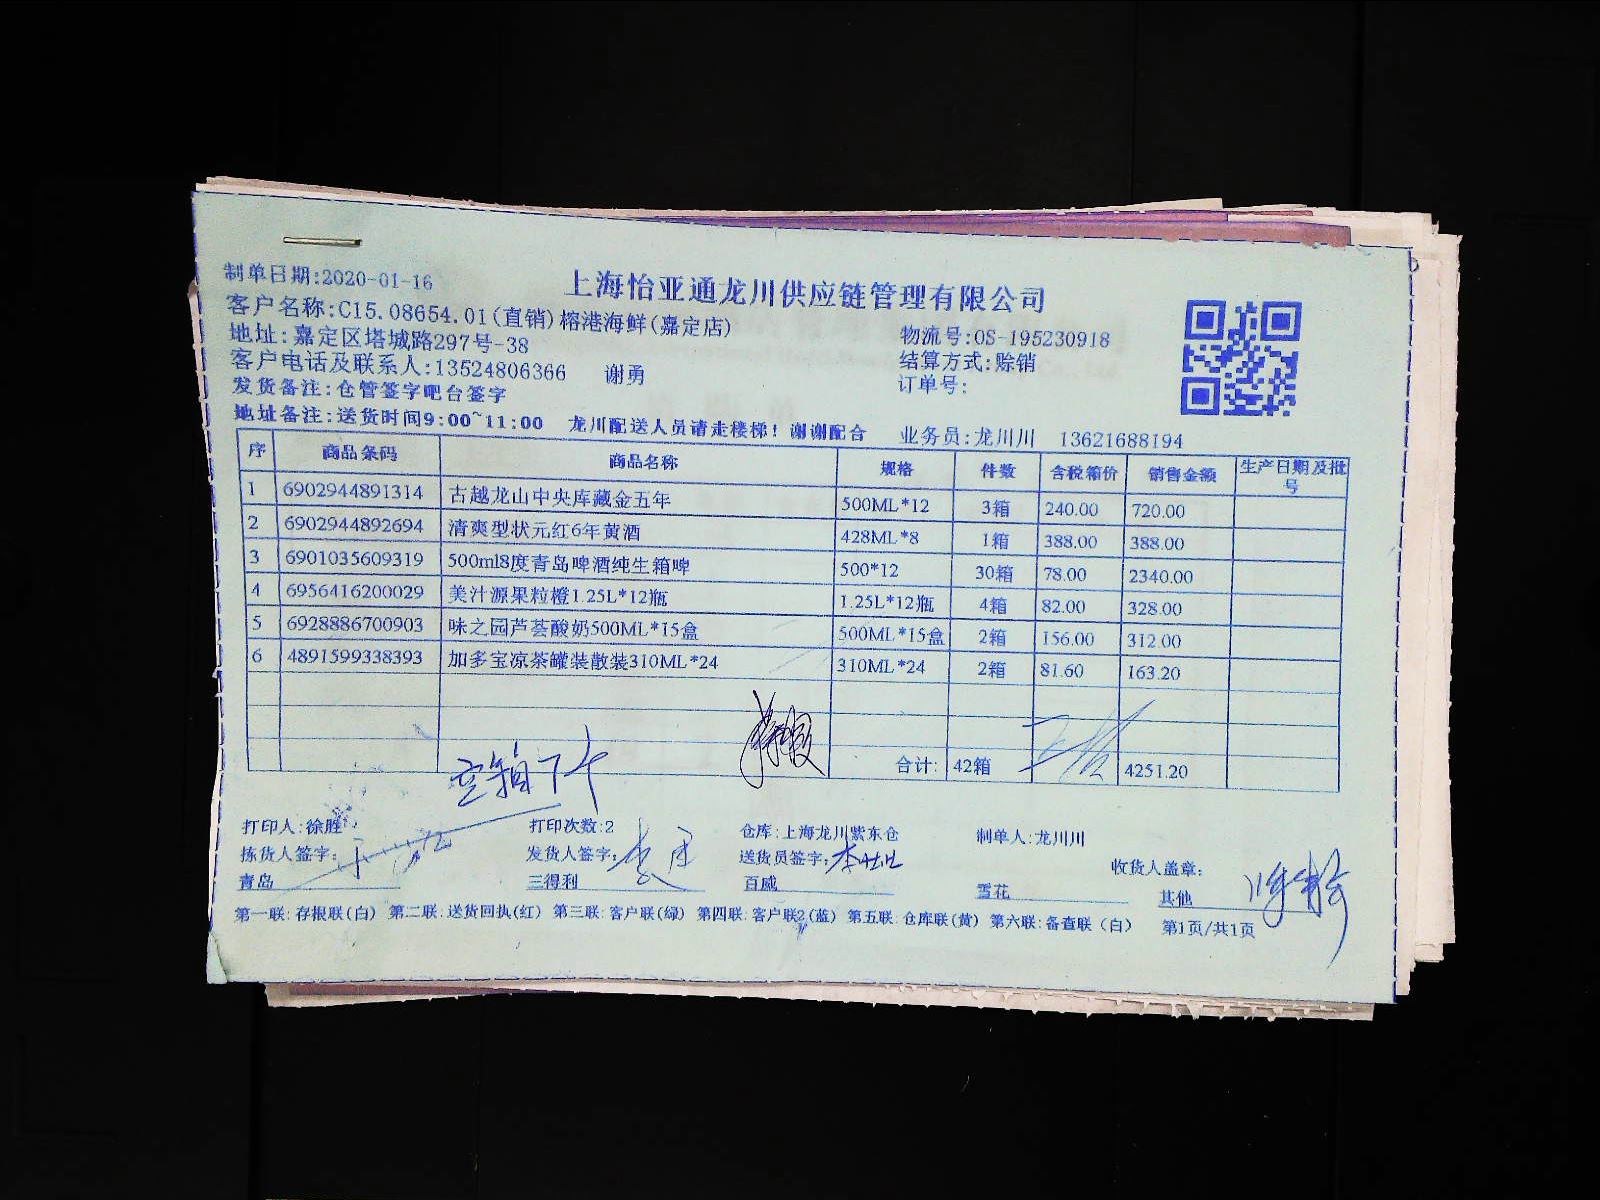 上海怡亚通龙川供应链管理有限公司
制单日期:2020-01-16
客户名称:C15.08654.01(直销)榕港海鲜(嘉定店)
物流号:OS-195230918
地址:嘉定区塔城路297号-38
结算方式:赊销
客户电话及联系人:13524806366 谢勇
订单号:
发货备注:仓管签字吧台签字
地址备注:送货时间9:00~11:00 龙川配送人员请走楼梯！谢谢配合 业务员:龙川川 13621688194
序 商品条码 商品名称 规格 件数 含税箱价 销售金额 生产日期及批号
1 6902944891314 古越龙山中央库藏金五年 500ML*12 3箱 240.00 720.00
2 6902944892694 清爽型状元红6年黄酒 428ML*8 1箱 388.00 388.00
3 6901035609319 500ml8度青岛啤酒纯生箱啤 500*12 30箱 78.00 2340.00
4 6956416200029 美汁源果粒橙1.25L*12瓶 1.25L*12瓶 4箱 82.00 328.00
5 6928886700903 味之园芦荟酸奶500ML*15盒 500ML*15盒 2箱 156.00 312.00
6 4891599338393 加多宝凉茶罐装散装310ML*24 310ML*24 2箱 81.60 163.20
合计: 42箱 4251.20
空箱下午
打印人:徐胜 打印次数:2 仓库:上海龙川紫东仓 制单人:龙川川
拣货人签字: 发货人签字: 送货员签字: 收货人盖章:
青岛 三得利 百威 雪花 其他
第一联:存根联(白) 第二联:送货回执(红) 第三联:客户联(绿) 第四联:客户联2(蓝) 第五联:仓库联(黄) 第六联:备查联(白) 第1页/共1页